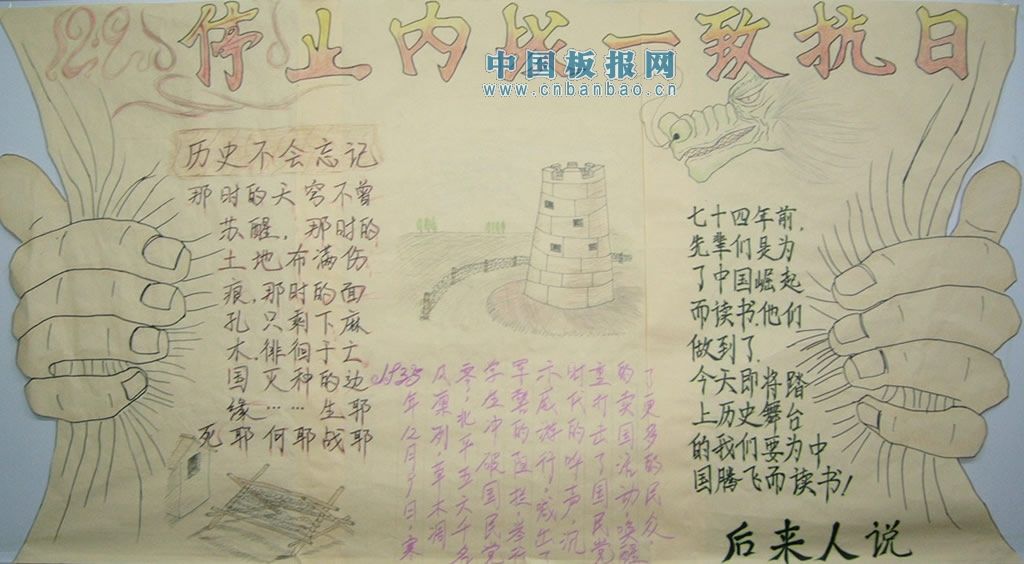 12.9
停止内战一致抗日
中国板报网
www.cnbanbao.cn
历史不会忘记
那时的天穹不曾
苏醒,那时的
土地布满伤
痕,那时的面
孔只剩下麻
木,徘徊于亡
国灭种的边
缘……生耶
死耶何耶战耶
1935年12月9日,寒
风凛冽,草木凋
零,北平五六千名
学生冲破国民党
军警的阻拦举行
示威游行,喊出了
时代的呼声,沉
重打击了国民党
的卖国活动,唤醒
了更多的民众.
七十四年前,
先辈们是为
了中国崛起
而读书.他们
做到了.
今天即将踏
上历史舞台
的我们要为中
国腾飞而读书!
后来人说